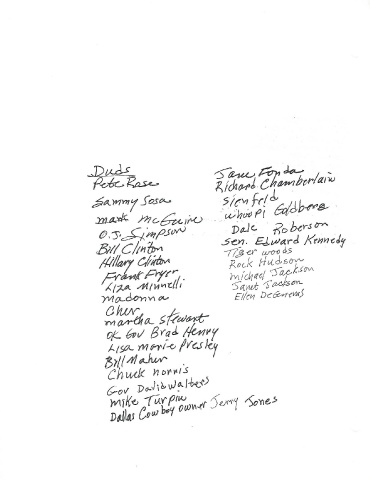 Duds
Pete Rose
Sammy Sosa
mark McGuire
O.J. Simpson
Bill Clinton
Hillary Clinton
Frank Fryer
Liza Minnelli
madonna
Cher
martha stewart
OK Gov Brad Henry
Lisa Marie Presley
Bill Maher
Chuck norris
Gov David Walters
mike Turpin
Dallas Cowboy owner Jerry Jones
Jane Fonda
Richard Chamberlain
sienfeld
whoopi Goldberg
Dale Roberson
Sen. Edward Kennedy
Tiger woods
Rock Hudson
michael Jackson
Janet Jackson
Ellen DeGeneras